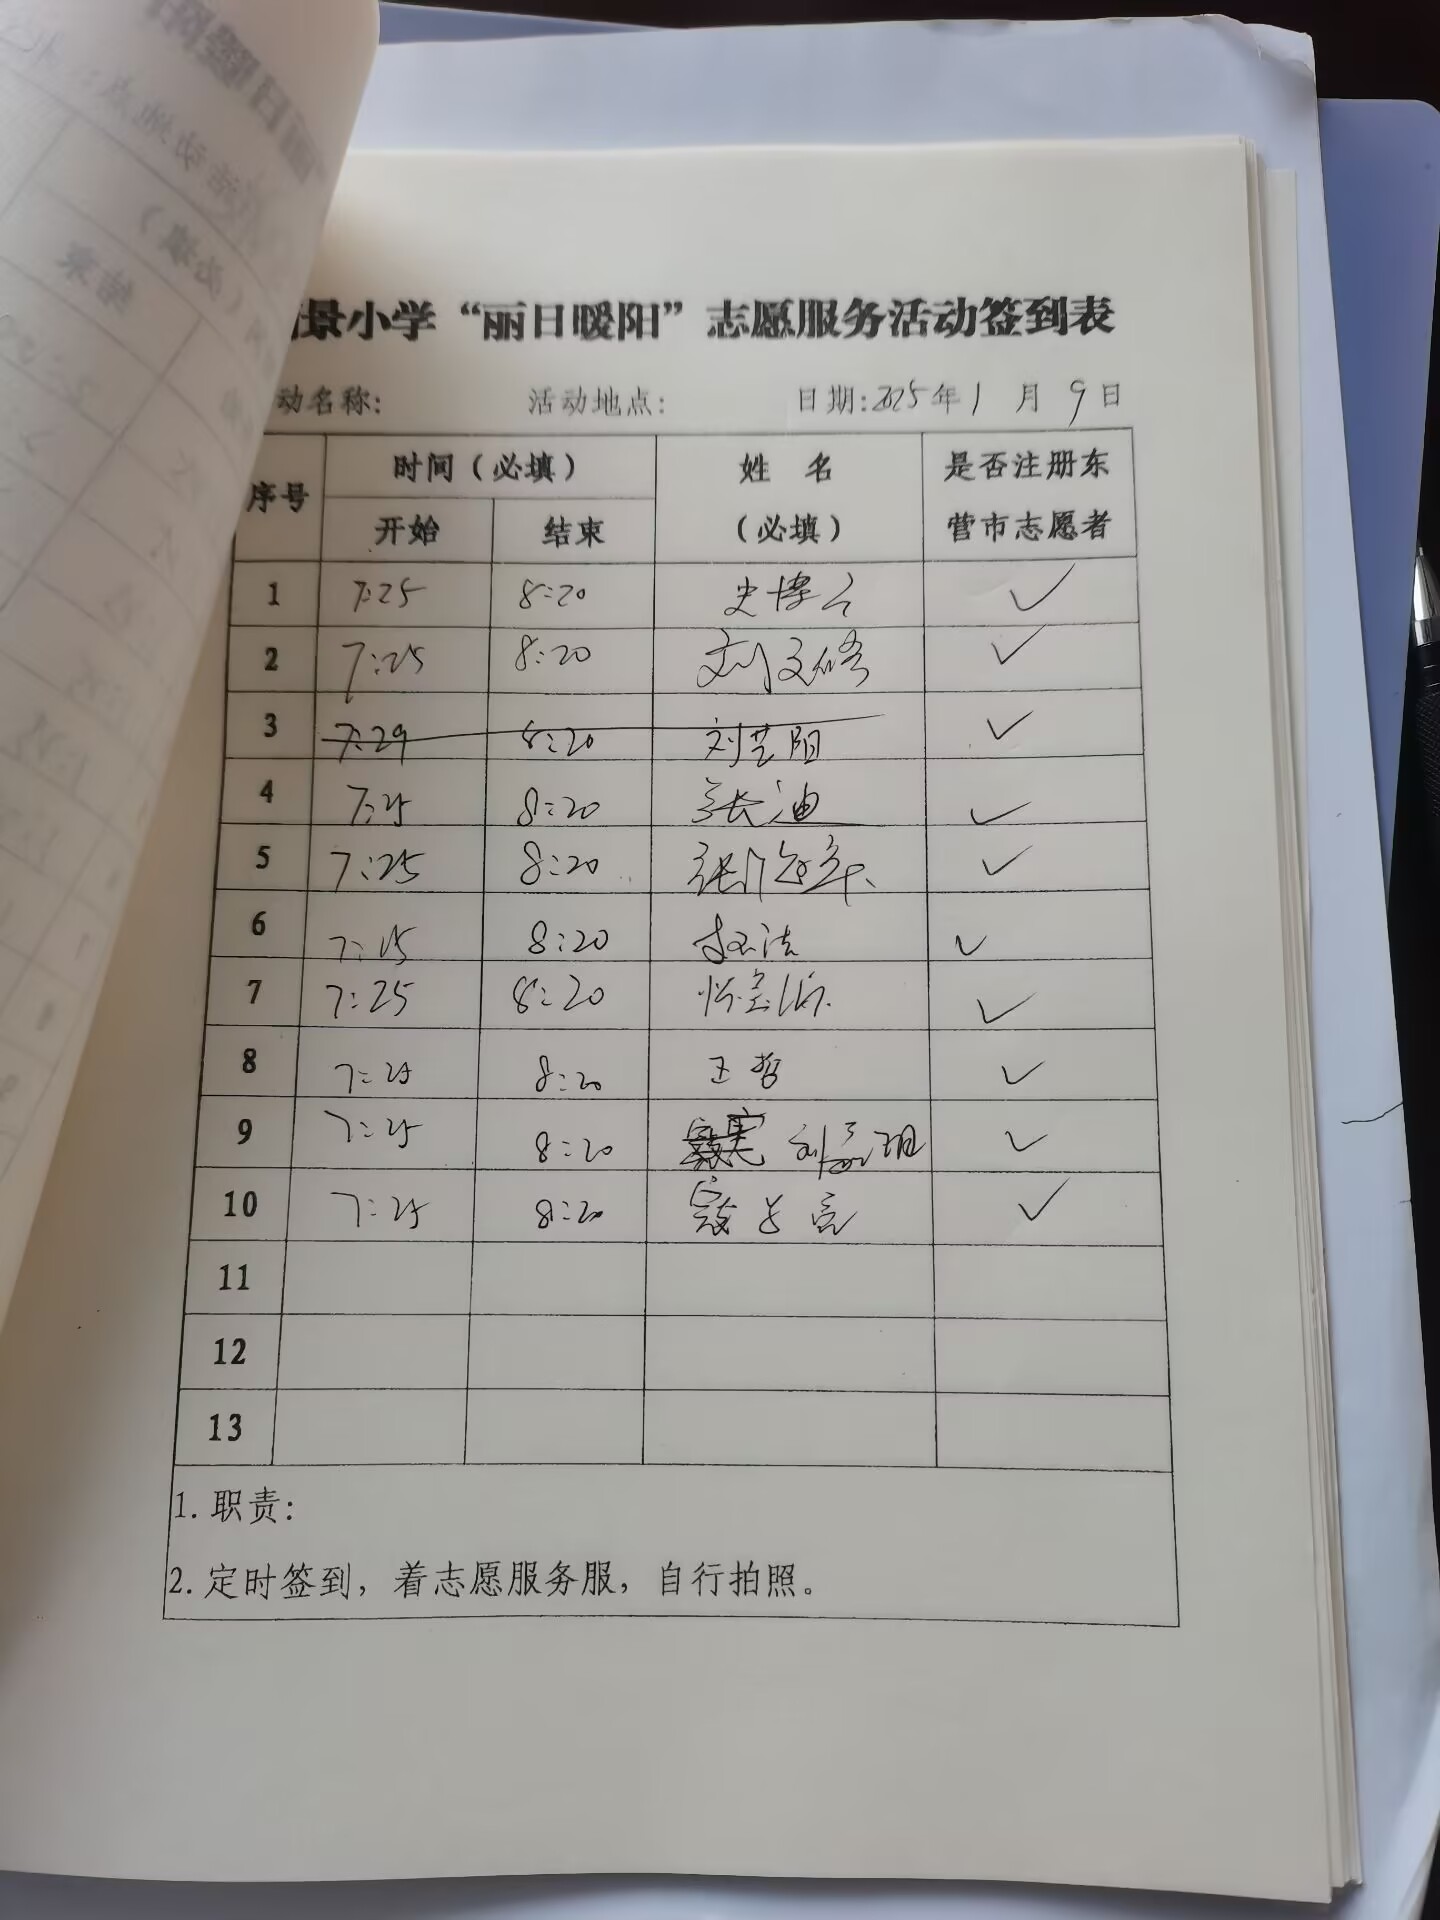 景小学“丽日暖阳”志愿服务活动签到表
动名称: 活动地点: 日期:2025年1月9日
序号 时间(必填) 姓名(必填) 是否注册东营市志愿者
开始 结束
1 7:25 8:20 史 ✓
2 7:25 8:20 刘文修 ✓
3 7:29 8:20 刘芝阳 ✓
4 7:25 8:20 张迪 ✓
5 7:25 8:20 张 ✓
6 7:25 8:20 ✓
7 7:25 8:20 ✓
8 7:25 8:20 王哲 ✓
9 7:25 8:20 刘 ✓
10 7:25 8:20 寇 ✓
11
12
13
1. 职责:
2. 定时签到，着志愿服务服，自行拍照。